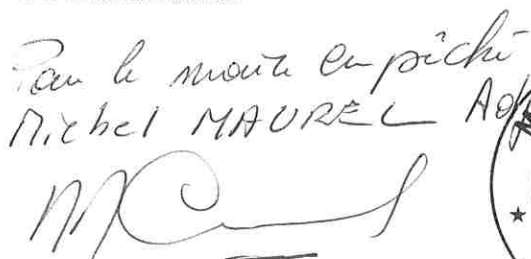 Pour le maire empêché
Michel MAUREL Ad